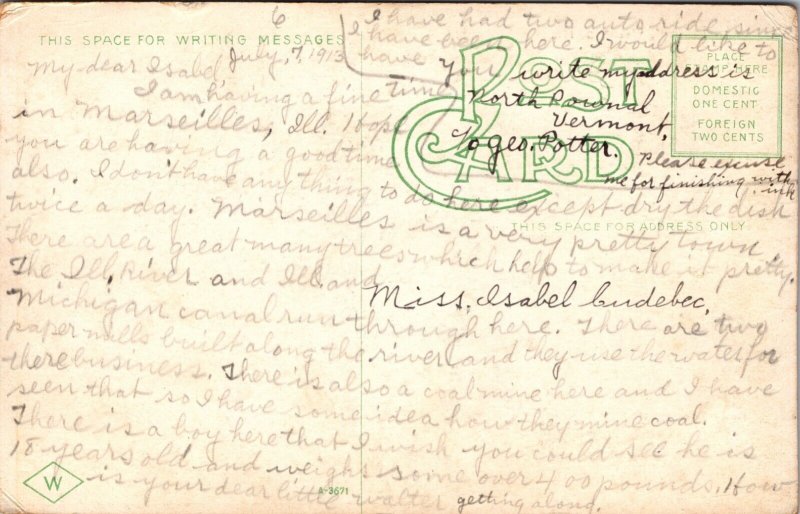 THIS SPACE FOR WRITING MESSAGES
POST CARD
PLACE
STAMP HERE
DOMESTIC
ONE CENT
FOREIGN
TWO CENTS
THIS SPACE FOR ADDRESS ONLY
6
July, 7, 1913
My dear Isabel,
I am having a fine time
in Marseilles, Ill. I hope
you are having a good time
also. I don't have any thing to do here except dry the dish
twice a day. Marseilles is a very pretty town
There are a great many trees which help to make it pretty.
The Ill. River and Ill. and
Michigan canal run through here. There are two
paper mills built along the river and they use the water for
there business. There is also a coal mine here and I have
seen that so I have some idea how they mine coal.
There is a boy here that I wish you could see he is
18 years old and weighs some over 400 pounds. How
is your dear little walter getting along.
I have had two auto ride since
I have been here. I would like to
have you write my address is
North Pownal
Vermont,
c/o Geo. Potter.
Please excuse
me for finishing with
ink
Miss. Isabel Cudebec,
W
A-3671